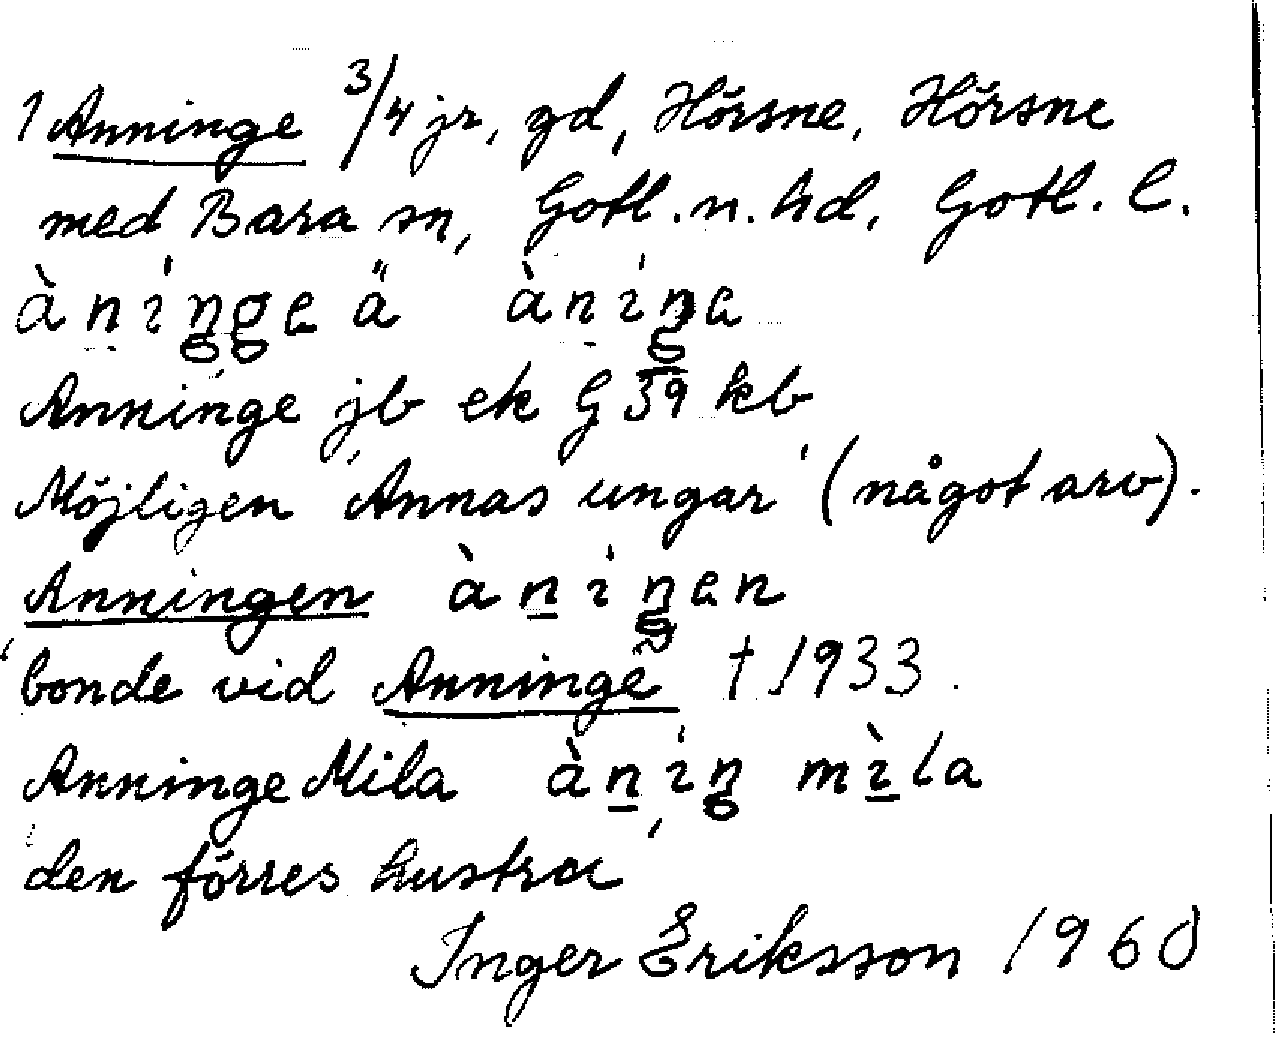 1 Anninge 3/4 jr, gd, Hörsne, Hörsne
med Bara sn, Gotl. n. hd, Gotl. l.
àni̍ngge ä àni̍nge
Anninge jb ek G 39 kb
Möjligen 'Annas ungar' (något arv).
Anningen àni̍ngen
'bonde vid Anninge' † 1933.
Anninge Mila àni̍ng mìla
'den förres hustru'
Inger Eriksson 1960